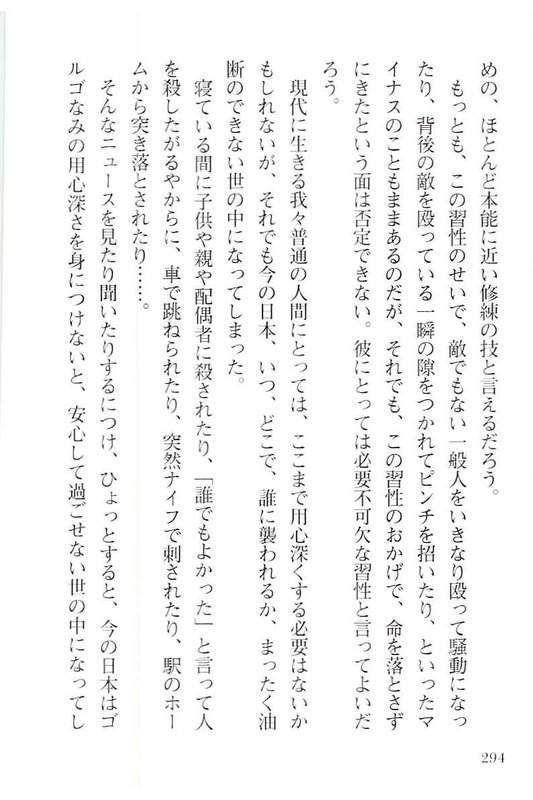 めの、ほとんど本能に近い修練の技と言えるだろう。
もっとも、この習性のせいで、敵でもない一般人をいきなり殴って騒動になっ
たり、背後の敵を殴っている一瞬の隙をつかれてピンチを招いたり、といったマ
イナスのこともままあるのだが、それでも、この習性のおかげで、命を落とさず
にきたという面は否定できない。彼にとっては必要不可欠な習性と言ってよいだ
ろう。
現代に生きる我々普通の人間にとっては、ここまで用心深くする必要はないか
もしれないが、それでも今の日本、いつ、どこで、誰に襲われるか、まったく油
断のできない世の中になってしまった。
寝ている間に子供や親や配偶者に殺されたり、「誰でもよかった」と言って人
を殺したがるやからに、車で跳ねられたり、突然ナイフで刺されたり、駅のホー
ムから突き落とされたり……。
そんなニュースを見たり聞いたりするにつけ、ひょっとすると、今の日本はゴ
ルゴなみの用心深さを身につけないと、安心して過ごせない世の中になってし
294